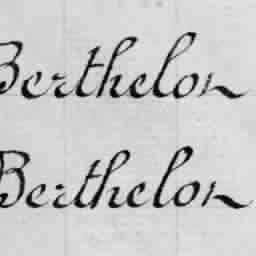 Berthelon
Berthelon